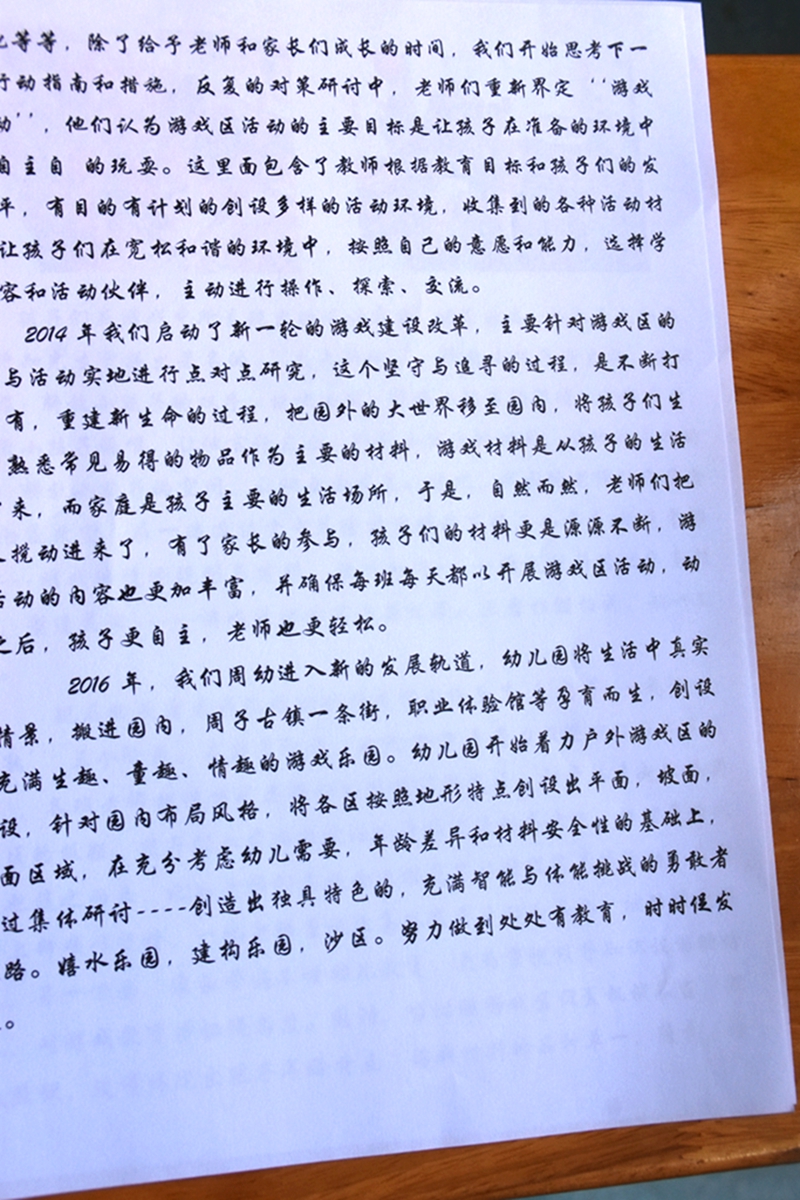 等等，除了给予老师和家长们成长的时间，我们开始思考下一
行动指南和措施，反复的对策研讨中，老师们重新界定“游戏
动”，他们认为游戏区活动的主要目标是让孩子在准备的环境中
自主自 的玩耍。这里面包含了教师根据教育目标和孩子们的发
平，有目的有计划的创设多样的活动环境，收集到的各种活动材
让孩子们在宽松和谐的环境中，按照自己的意愿和能力，选择学
容和活动伙伴，主动进行操作、探索、交流。
2014 年我们启动了新一轮的游戏建设改革，主要针对游戏区的
与活动实地进行点对点研究，这个坚守与追寻的过程，是不断打
有，重建新生命的过程，把园外的大世界移至园内，将孩子们生
熟悉常见易得的物品作为主要的材料，游戏材料是从孩子的生活
来，而家庭是孩子主要的生活场所，于是，自然而然，老师们把
搅动进来了，有了家长的参与，孩子们的材料更是源源不断，游
活动的内容也更加丰富，并确保每班每天都以开展游戏区活动，动
之后，孩子更自主，老师也更轻松。
2016 年，我们周幼进入新的发展轨道，幼儿园将生活中真实
情景，搬进园内，周子古镇一条街，职业体验馆等孕育而生，创设
充满生趣、童趣、情趣的游戏乐园。幼儿园开始着力户外游戏区的
设，针对园内布局风格，将各区按照地形特点创设出平面，坡面，
面区域，在充分考虑幼儿需要，年龄差异和材料安全性的基础上，
过集体研讨----创造出独具特色的，充满智能与体能挑战的勇敢者
路。嬉水乐园，建构乐园，沙区。努力做到处处有教育，时时促发
。